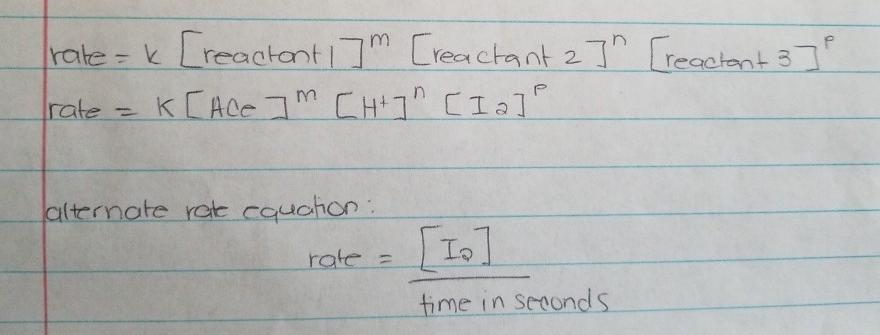 rate = k [reactant 1]^m [reactant 2]^n [reactant 3]^p
rate = K [Ace]^m [H+]^n [I2]^p
alternate rate equation:
rate = [I2]
time in seconds